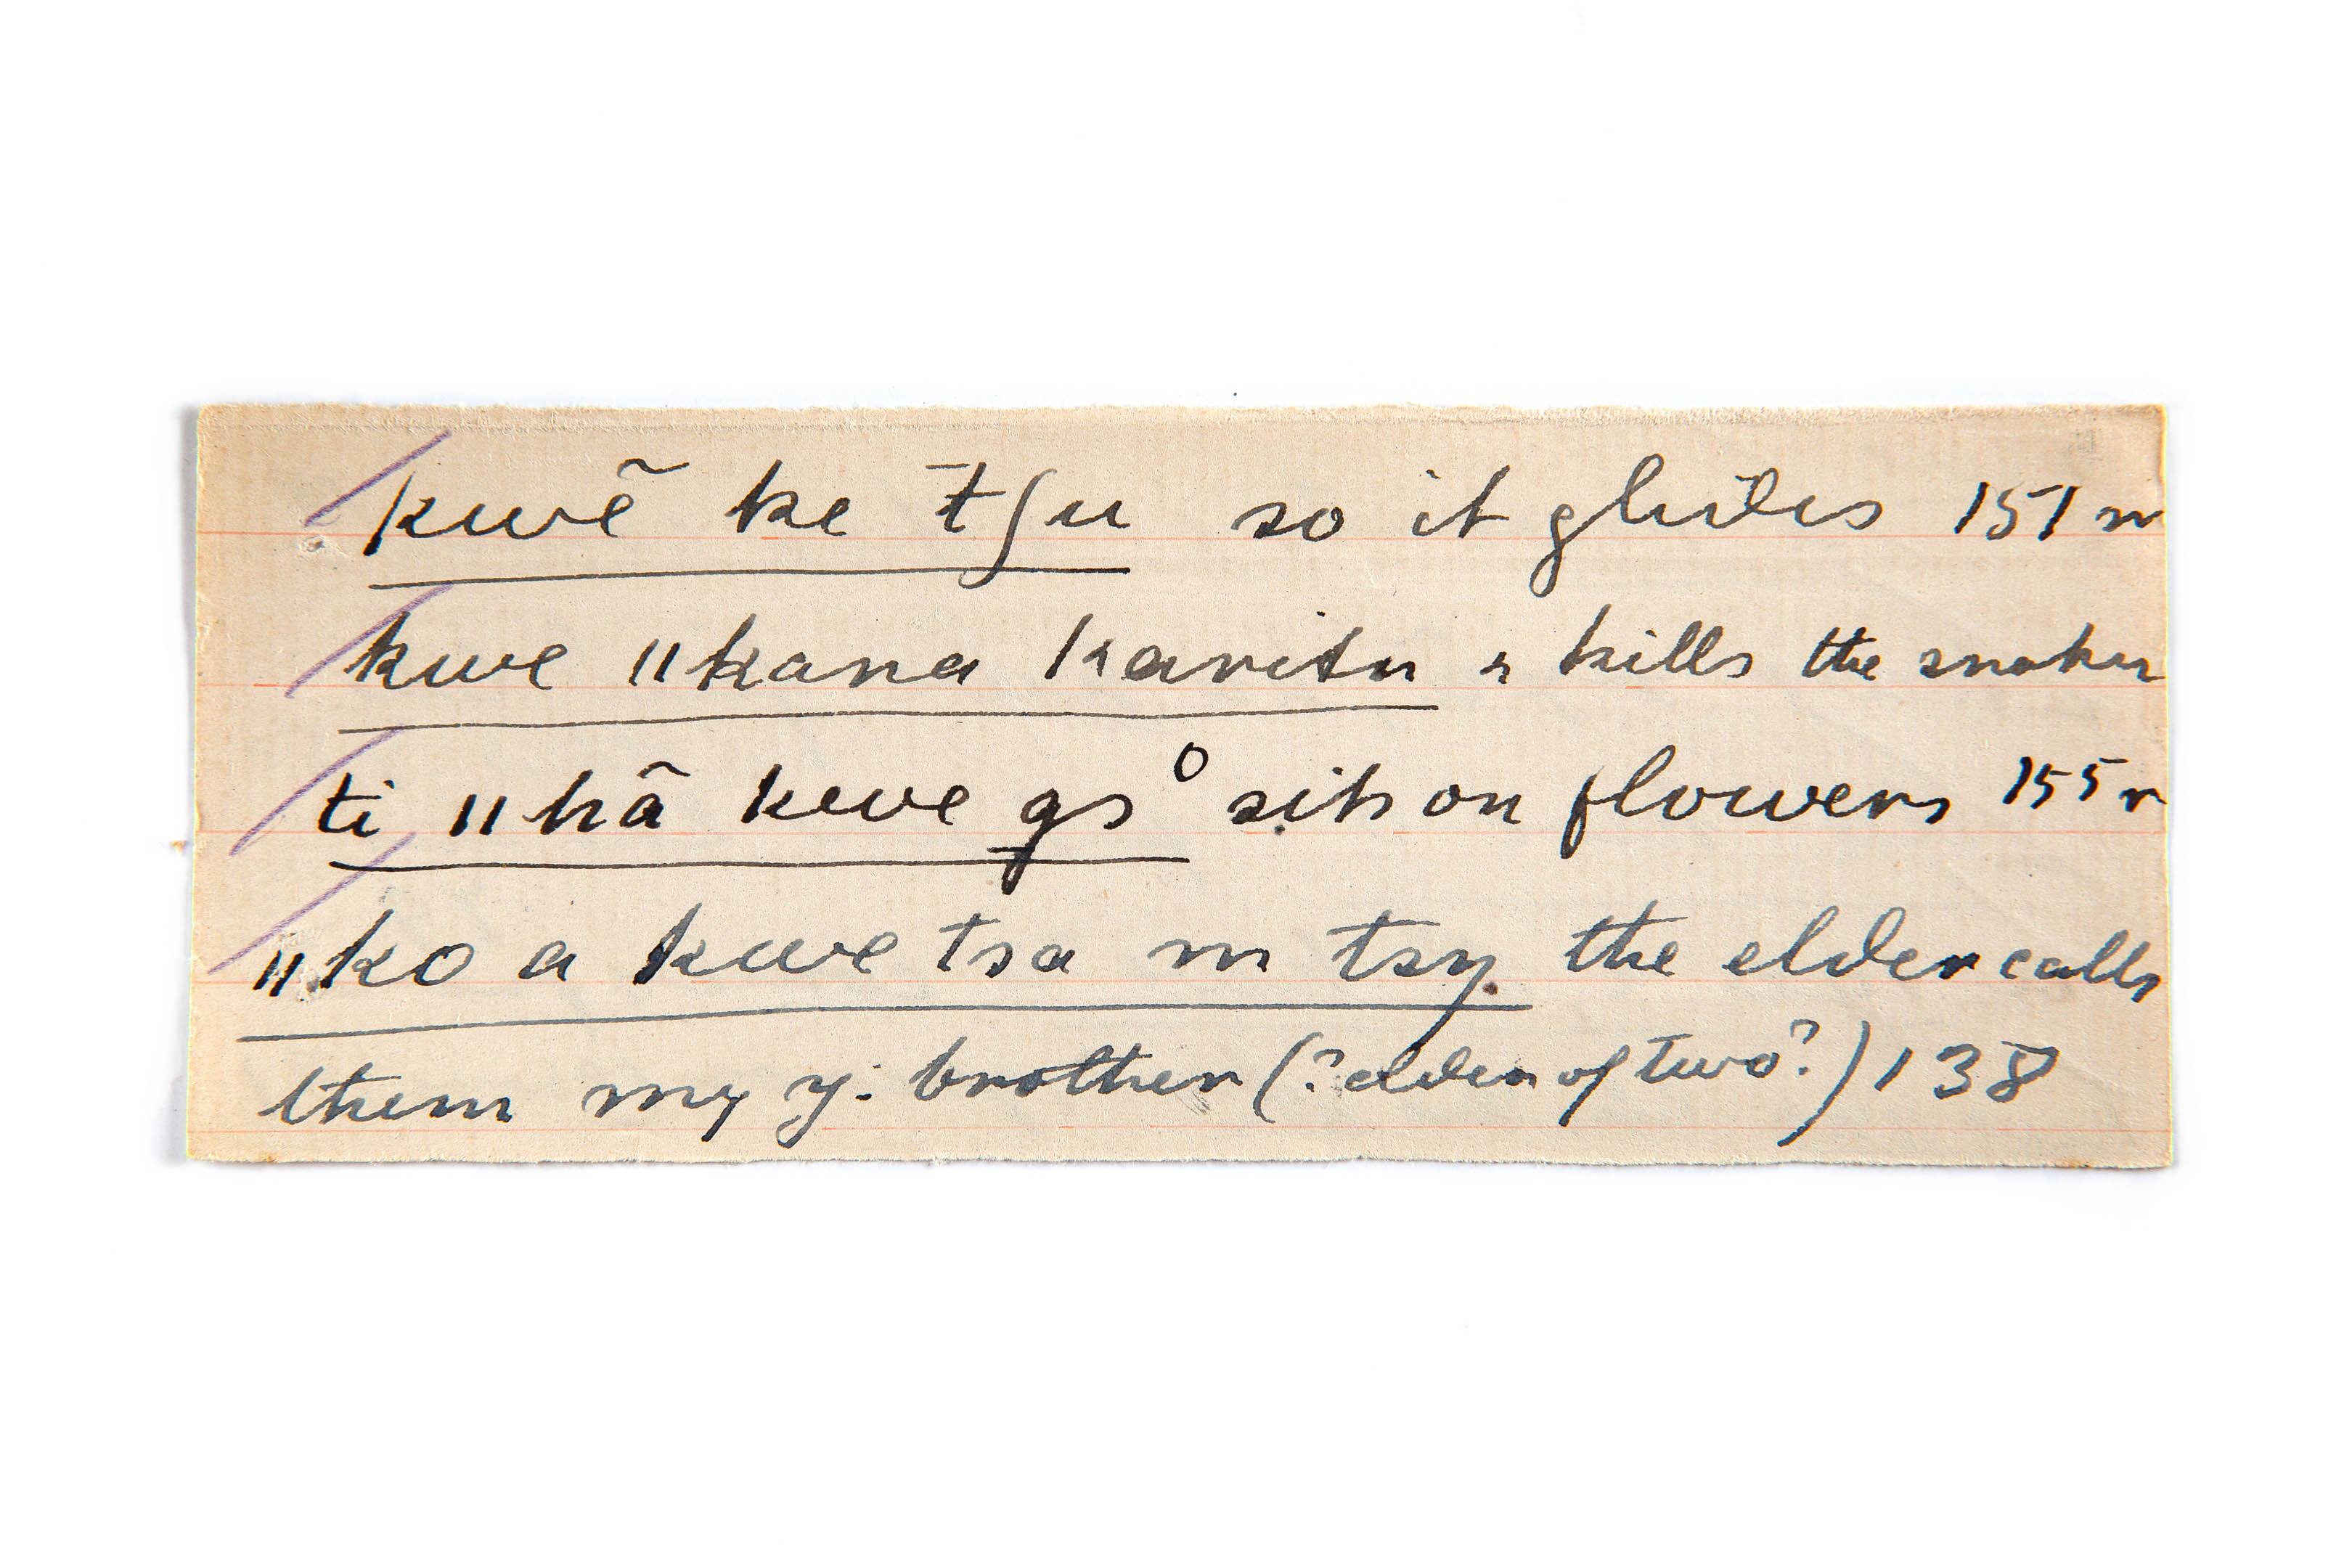 kwẽ ke tʃu so it glides 151 r
kwe ‖kana karitu & kills the snake
ti ‖hã kwe gs° sits on flowers 155 r
‖ko a kwe tsa m tsŋ the elder calls
them my y. brother (? elder of two?) 138